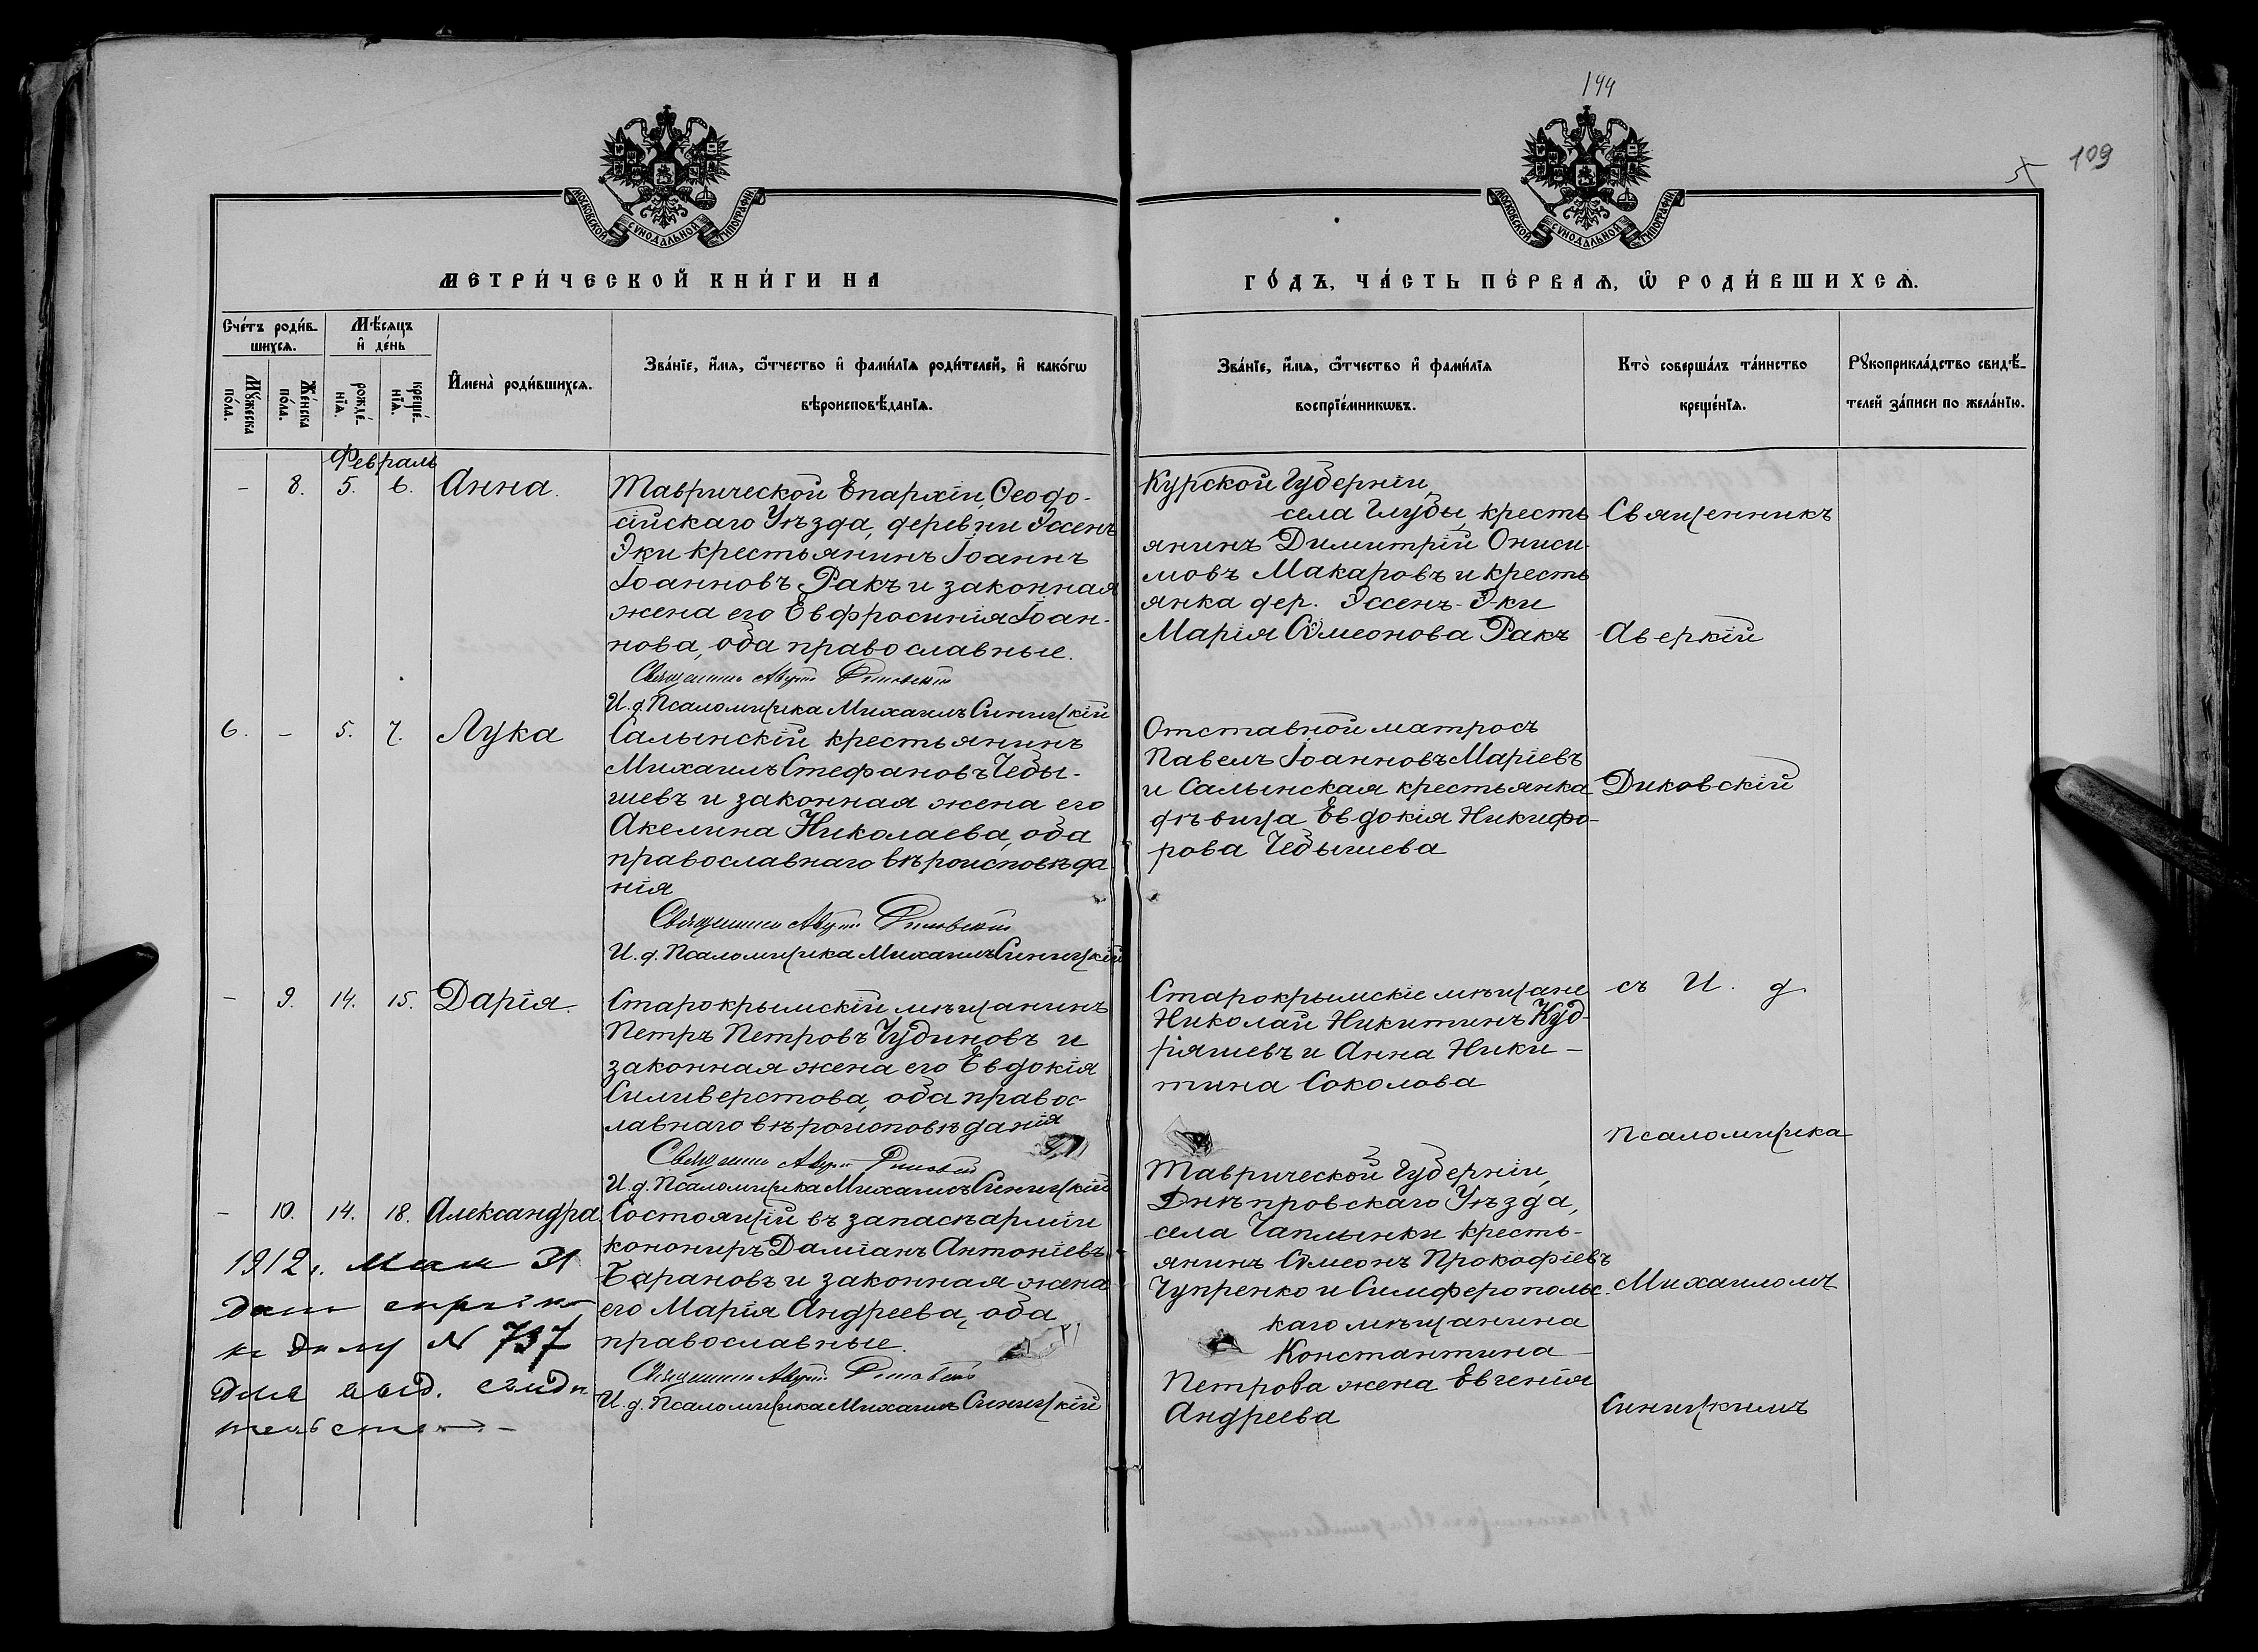 144
109
МОСКОВСКОЙ СѴНОДАЛЬНОЙ ТИПОГРАФІИ
МОСКОВСКОЙ СѴНОДАЛЬНОЙ ТИПОГРАФІИ
МЕТРИ́ЧЕСКОЙ КНИ́ГИ НА
ГО́ДЪ, ЧА́СТЬ ПЕ́РВАѦ, Ѽ РОДИ́ВШИХСѦ.
Сче́тъ роди́в-
шихсѧ.
Мѣ́сѧцъ
и҆ де́нь
Мꙋ́жеска
по́ла.
Же́нска
по́ла.
рожде́-
нїѧ.
креще́-
нїѧ.
И҆мена̀ роди́вшихсѧ.
Зва́нїе, и҆́мѧ, ѻ҆́тчество и҆ фами́лїѧ роди́телей, и҆ како́гѡ
вѣроисповѣ́данїѧ.
Зва́нїе, и҆́мѧ, ѻ҆́тчество и҆ фами́лїѧ
воспрїе́мникѡвъ.
Кто̀ соверша́лъ та́инство
креще́нїѧ.
Рꙋкоприкла́дство свидѣ́-
телей за́писи по жела́нїю.
Февраль
- 8. 5. 6. Анна.
Таврической Епархіи, Ѳеодо-
сійскаго Уѣзда, деревни Эссенъ
Эки крестьянинъ Іоаннъ
Іоанновъ Ракъ и законная
жена его Евфросинія Іоан-
нова, оба православные.
Священникъ Диковскій
И. д. Псаломщика Михаилъ Синицкій
Курской Губерніи,
села Глубы, кресть
янинъ Димитрій Ониси-
мовъ Макаровъ и кресть
янка дер. Эссенъ-Эки
Марія Сѵмеонова Ракъ
Священникъ
Аверкій
6. - 5. 7. Лука
Салынскій крестьянинъ
Михаилъ Стефановъ Чебы-
шевъ и законная жена его
Акелина Николаева, оба
православнаго вѣроисповѣда
нія
Священникъ Диковскій
И. д. Псаломщика Михаилъ Синицкій
Отставной матросъ
Павелъ Іоанновъ Маріевъ
и Салынская крестьянка
дѣвица Евдокія Никифо-
рова Чебышева
Диковскій
- 9. 14. 15. Дарія.
Старокрымскій мѣщанинъ
Петръ Петровъ Чудиновъ и
законная жена его Евдокія
Силиверстова, оба правос-
лавнаго вѣроисповѣданія
Священникъ Диковскій
И. д. Псаломщика Михаилъ Синицкій
Старокрымскіе мѣщане
Николай Никитинъ Куд-
ряшевъ и Анна Ники-
тина Соколова
съ И. д
псаломщика
- 10. 14. 18. Александра
Состоящій въ запасѣ арміи
конониръ Даміанъ Антоніевъ
Барановъ и законная жена
его Марія Андреева, оба
православные.
Священникъ Диковскій
И. д. Псаломщика Михаилъ Синицкій
Таврической Губерніи,
Днѣпровскаго Уѣзда,
села Чаплынки кресть-
янинъ Сѵмеонъ Прокофіевъ
Чупренко и Симферопольс.
каго мѣщанина
Константина
Петрова жена Евгенія
Андреева
Михаиломъ
Синицкимъ
1912 г. Мая 31
дана справка
къ дѣлу № 737
для выд. свидѣ
тельства